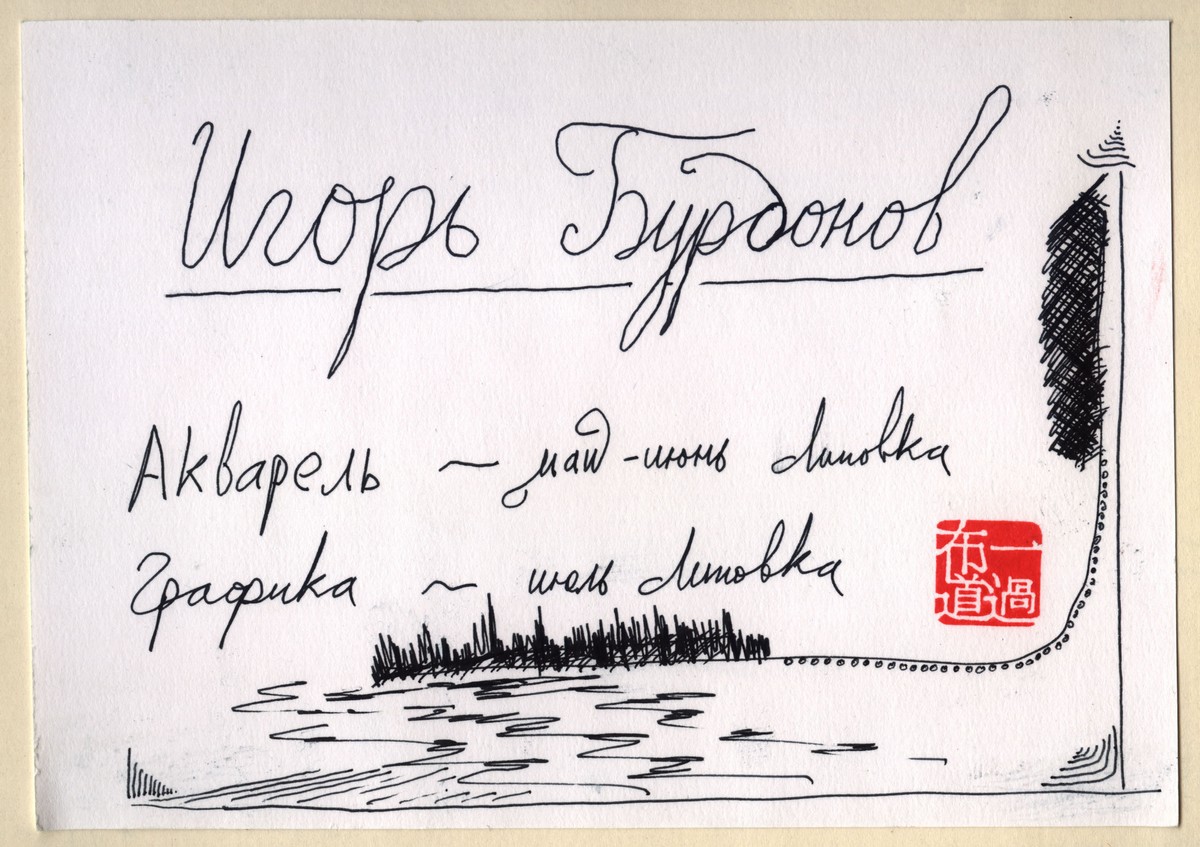 Игорь Бурдонов
Акварель ~ май-июнь Липовка
Графика ~ июль Липовка
一過
布道